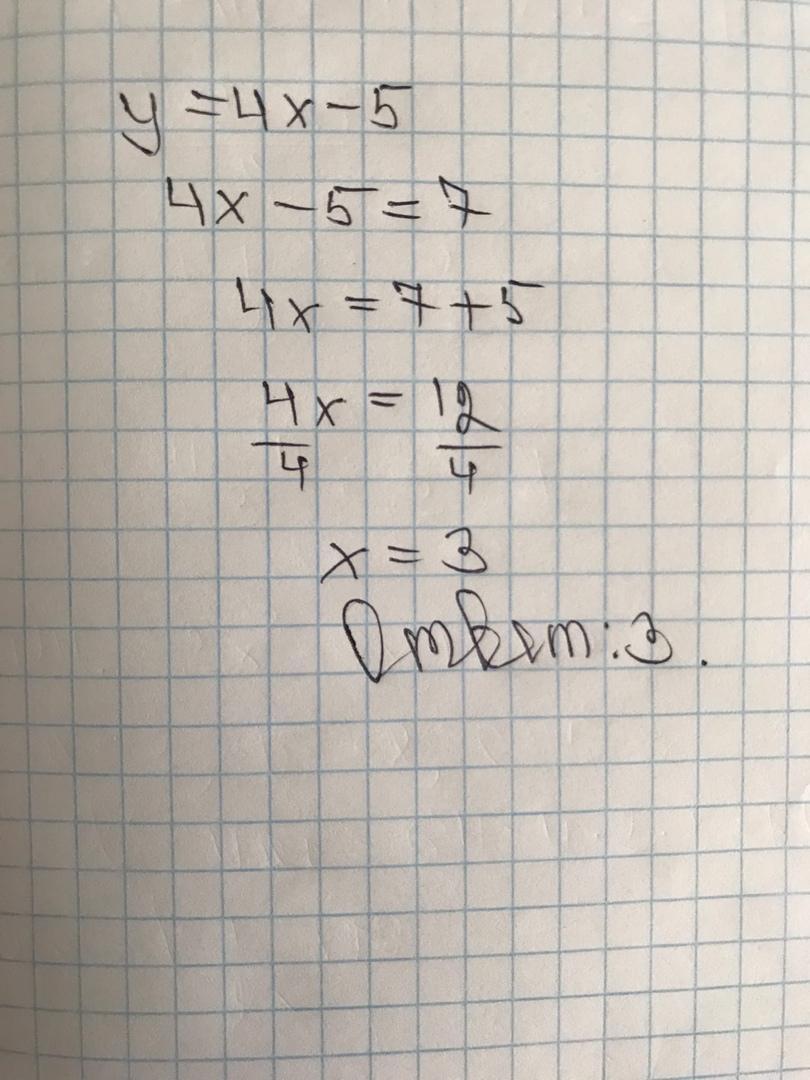 y = 4x - 5
4x - 5 = 7
4x = 7 + 5
4x/4 = 12/4
x = 3
Ответ: 3.